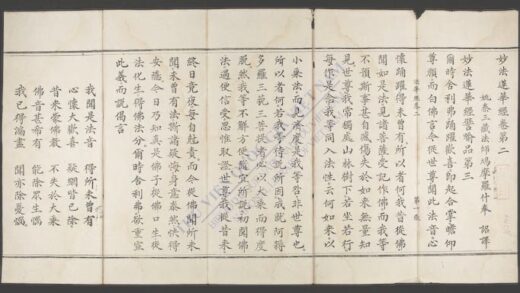 妙法蓮華經卷第二
姚秦三藏法師鳩摩羅什奉 詔譯
妙法蓮華經譬喻品第三
爾時舍利弗踊躍歡喜即起合掌瞻仰
尊顏而白佛言今從世尊聞此法音心
懷踊躍得未曾有所以者何我昔從佛
法華經卷二 第一張
聞如是法見諸菩薩受記作佛而我等
不預斯事甚自感傷失於如來無量知
見世尊我常獨處山林樹下若坐若行
每作是念我等同入法性云何如來以
小乘法而見濟度是我等咎非世尊也
所以者何若我等待說所因成就阿耨
多羅三藐三菩提者必以大乘而得度
脫然我等不解方便隨宜所說初聞佛
法遇便信受思惟取證世尊我從昔來
終日竟夜每自剋責而今從佛聞所未
聞未曾有法斷諸疑悔身意泰然快得
安隱今日乃知真是佛子從佛口生從
法化生得佛法分爾時舍利弗欲重宣
此義而說偈言
我聞是法音 得所未曾有
心懷大歡喜 疑網皆已除
昔來蒙佛教 不失於大乘
佛音甚希有 能除眾生惱
我已得漏盡 聞亦除憂惱